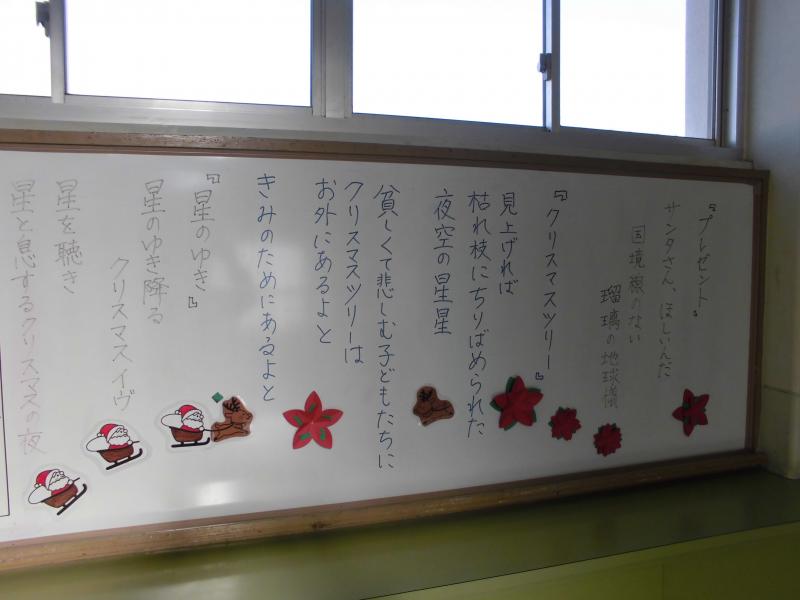 『プレゼント』
サンタさん、ほしいんだ
国境線のない
瑠璃の地球儀
『クリスマスツリー』
見上げれば
枯れ枝にちりばめられた
夜空の星星
貧しくて悲しむ子どもたちに
クリスマスツリーは
お外にあるよと
きみのためにあるよと
『星のゆき』
星のゆき降る
クリスマスイヴ
星を聴き
星と息するクリスマスの夜